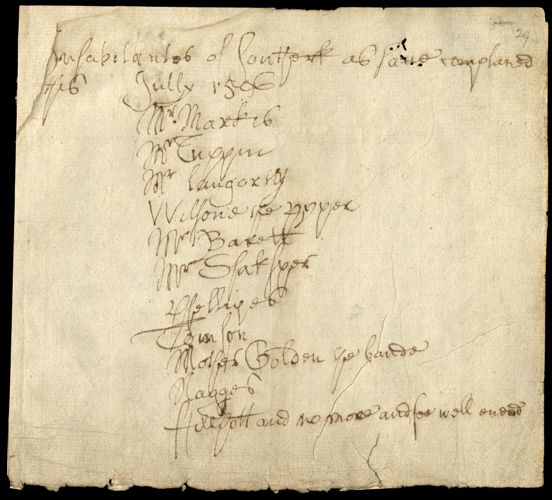 29
Inhabitantes of Sowtherk as have complaned
this Jully 1596
Mr Markis
Mr Tuppin
Mr Langorth
Wilsone the pyper
Mr Barett
Mr Shaksper
Phellipes
Tomson
Mother Golden the baude
Nagges
Fillpott and no more and soe well ended